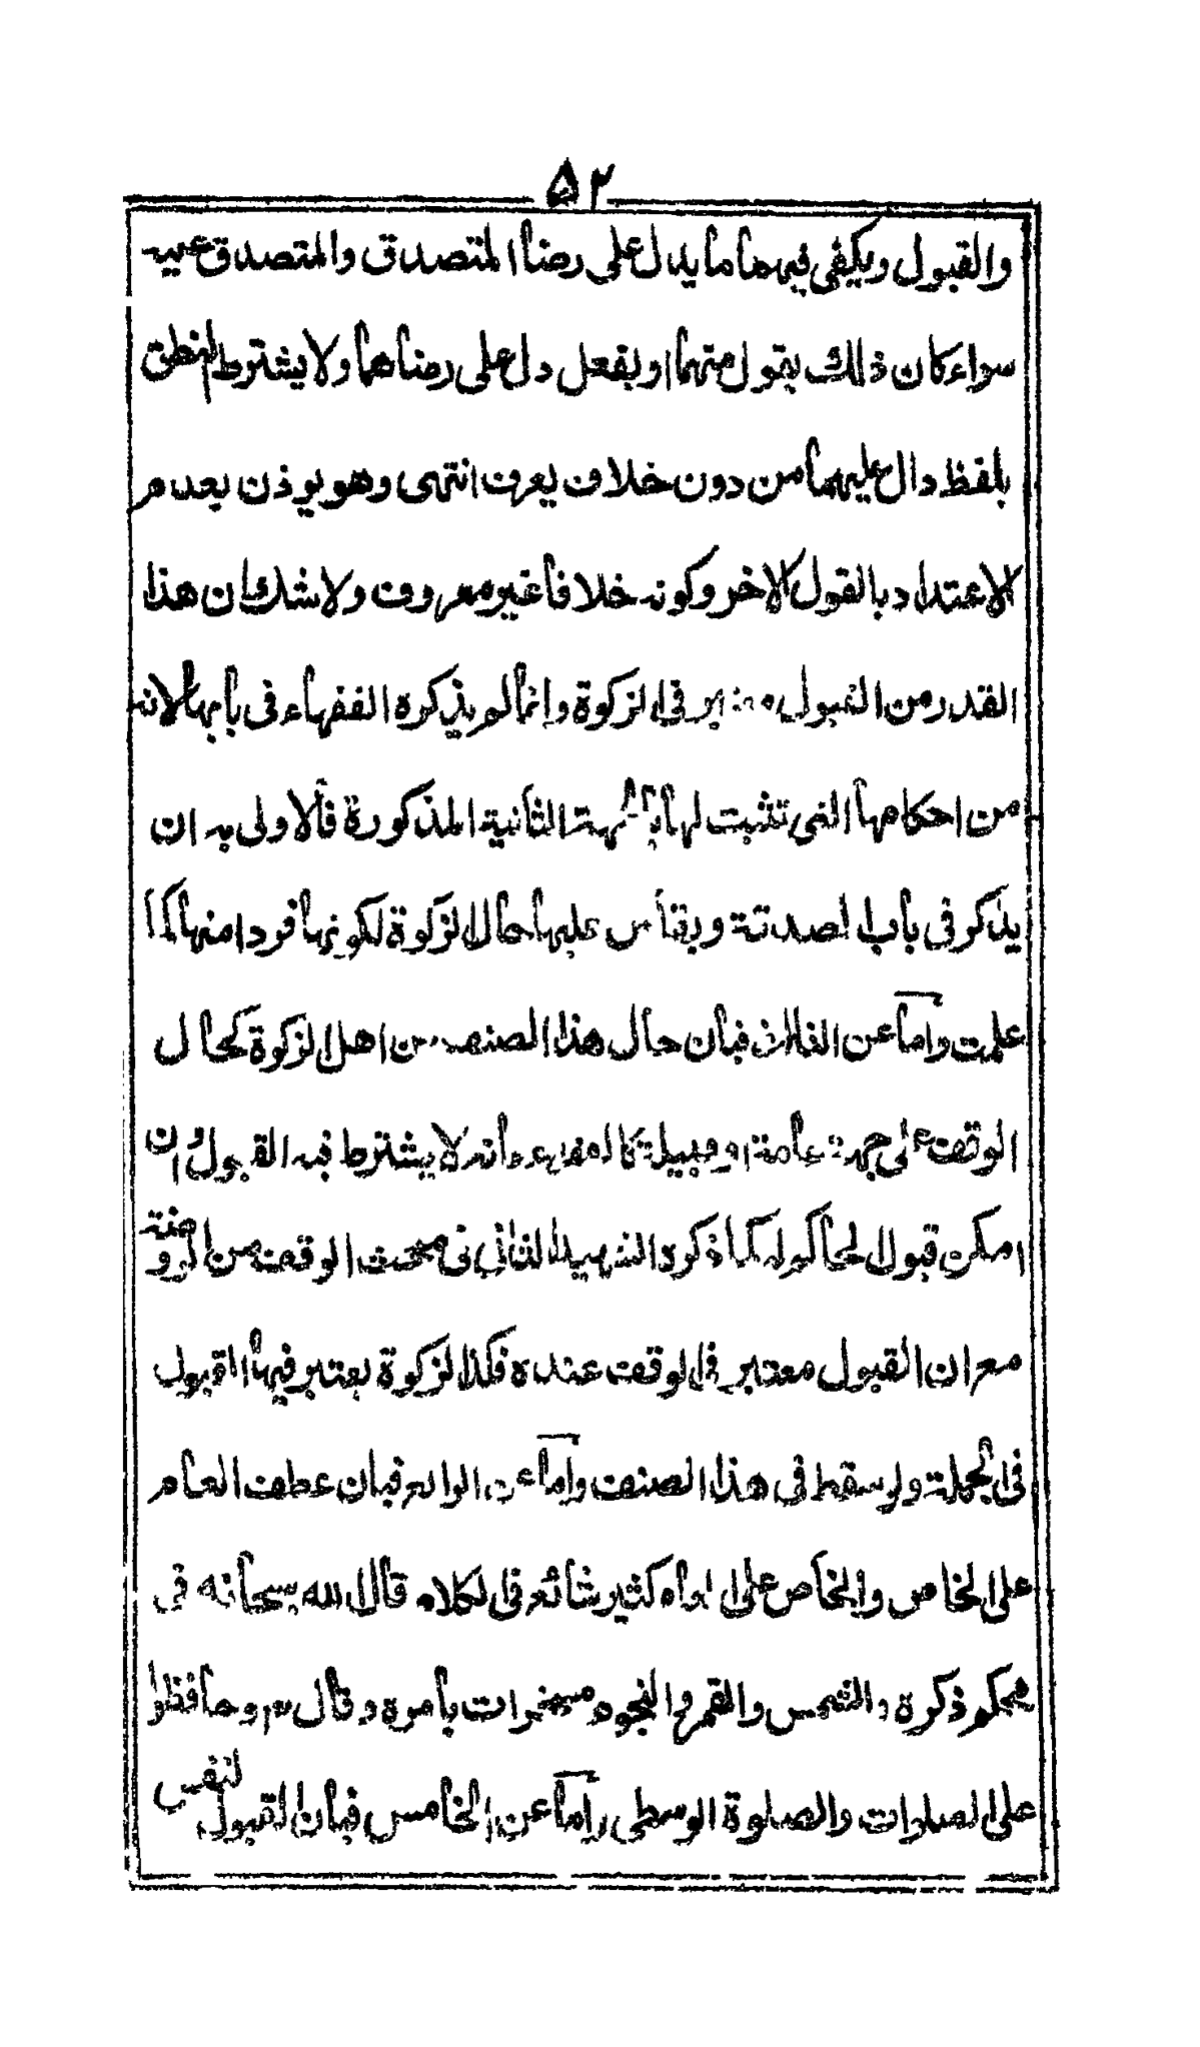 ۵۲
والقبول ويكفي فيهما ما يدل على رضا المتصدق والمتصدق عليه
سواء كان ذلك بقول منهما او بفعل دل على رضاهما ولا يشترط النطق
بلفظ دال عليهما من دون خلاف يعرف انتهى وهو يوذن بعدم
الاعتداد بالقول الاخر وكونه خلافا غير معروف ولا شك ان هذا
القدر من القبول معتبر في الزكوة وانما لم يذكره الفقهاء في بابها لانه
من احكامها التي تثبت لها بالجهة الثانية المذكورة فالاولى به ان
يذكر في باب الصدقة ويقاس عليها حال الزكوة لكونها فردا منها كما
علمت واما عن الثالث فبان حال هذا الصنف من اهل الزكوة كحال
الوقف على جهة عامة او قبيلة كالفقراء فانه لا يشترط فيه القبول وان
امكن قبول الحاكم له كما ذكره الشهيد الثاني في مبحث الوقف من الروضة
مع ان القبول معتبر في الوقف عنده فكذا الزكوة يعتبر فيها القبول
في الجملة ولو سقط في هذا الصنف واما عن الرابع فبان عطف العام
على الخاص والخاص على العام كثير شائع في الكلام قال الله سبحانه في
محكم ذكره والشمس والقمر والنجوم مسخرات بامره وقال تع وحافظوا
على الصلوات والصلوة الوسطى واما عن الخامس فبان القبول لنفس